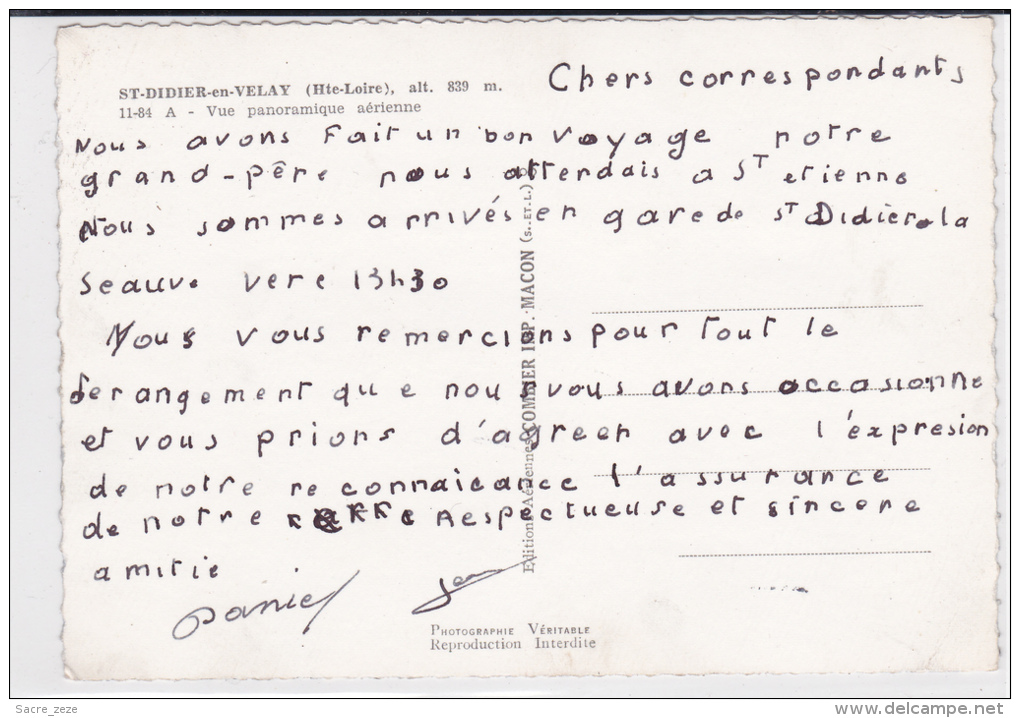 ST-DIDIER-en-VELAY (Hte-Loire), alt. 839 m.
11-84 A - Vue panoramique aérienne
Chers correspondants
Nous avons Fait un bon voyage notre
grand-pêre nous attendais a ST etienne
Nous sommes arrivés en gare de ST Didier la
seauve vere 13h30
Nous vous remercions pour tout le
derangement que nous vous avons occasionne
et vous prions d'agreer avec l'expresion
de notre reconnaicance l'assurance
de notre respectueuse et sincere
amitie
Daniel Jean
Editions Aériennes COMBIER IMP. MACON (S.-ET-L.)
PHOTOGRAPHIE VÉRITABLE
Reproduction Interdite
Sacre_zeze
www.delcampe.net